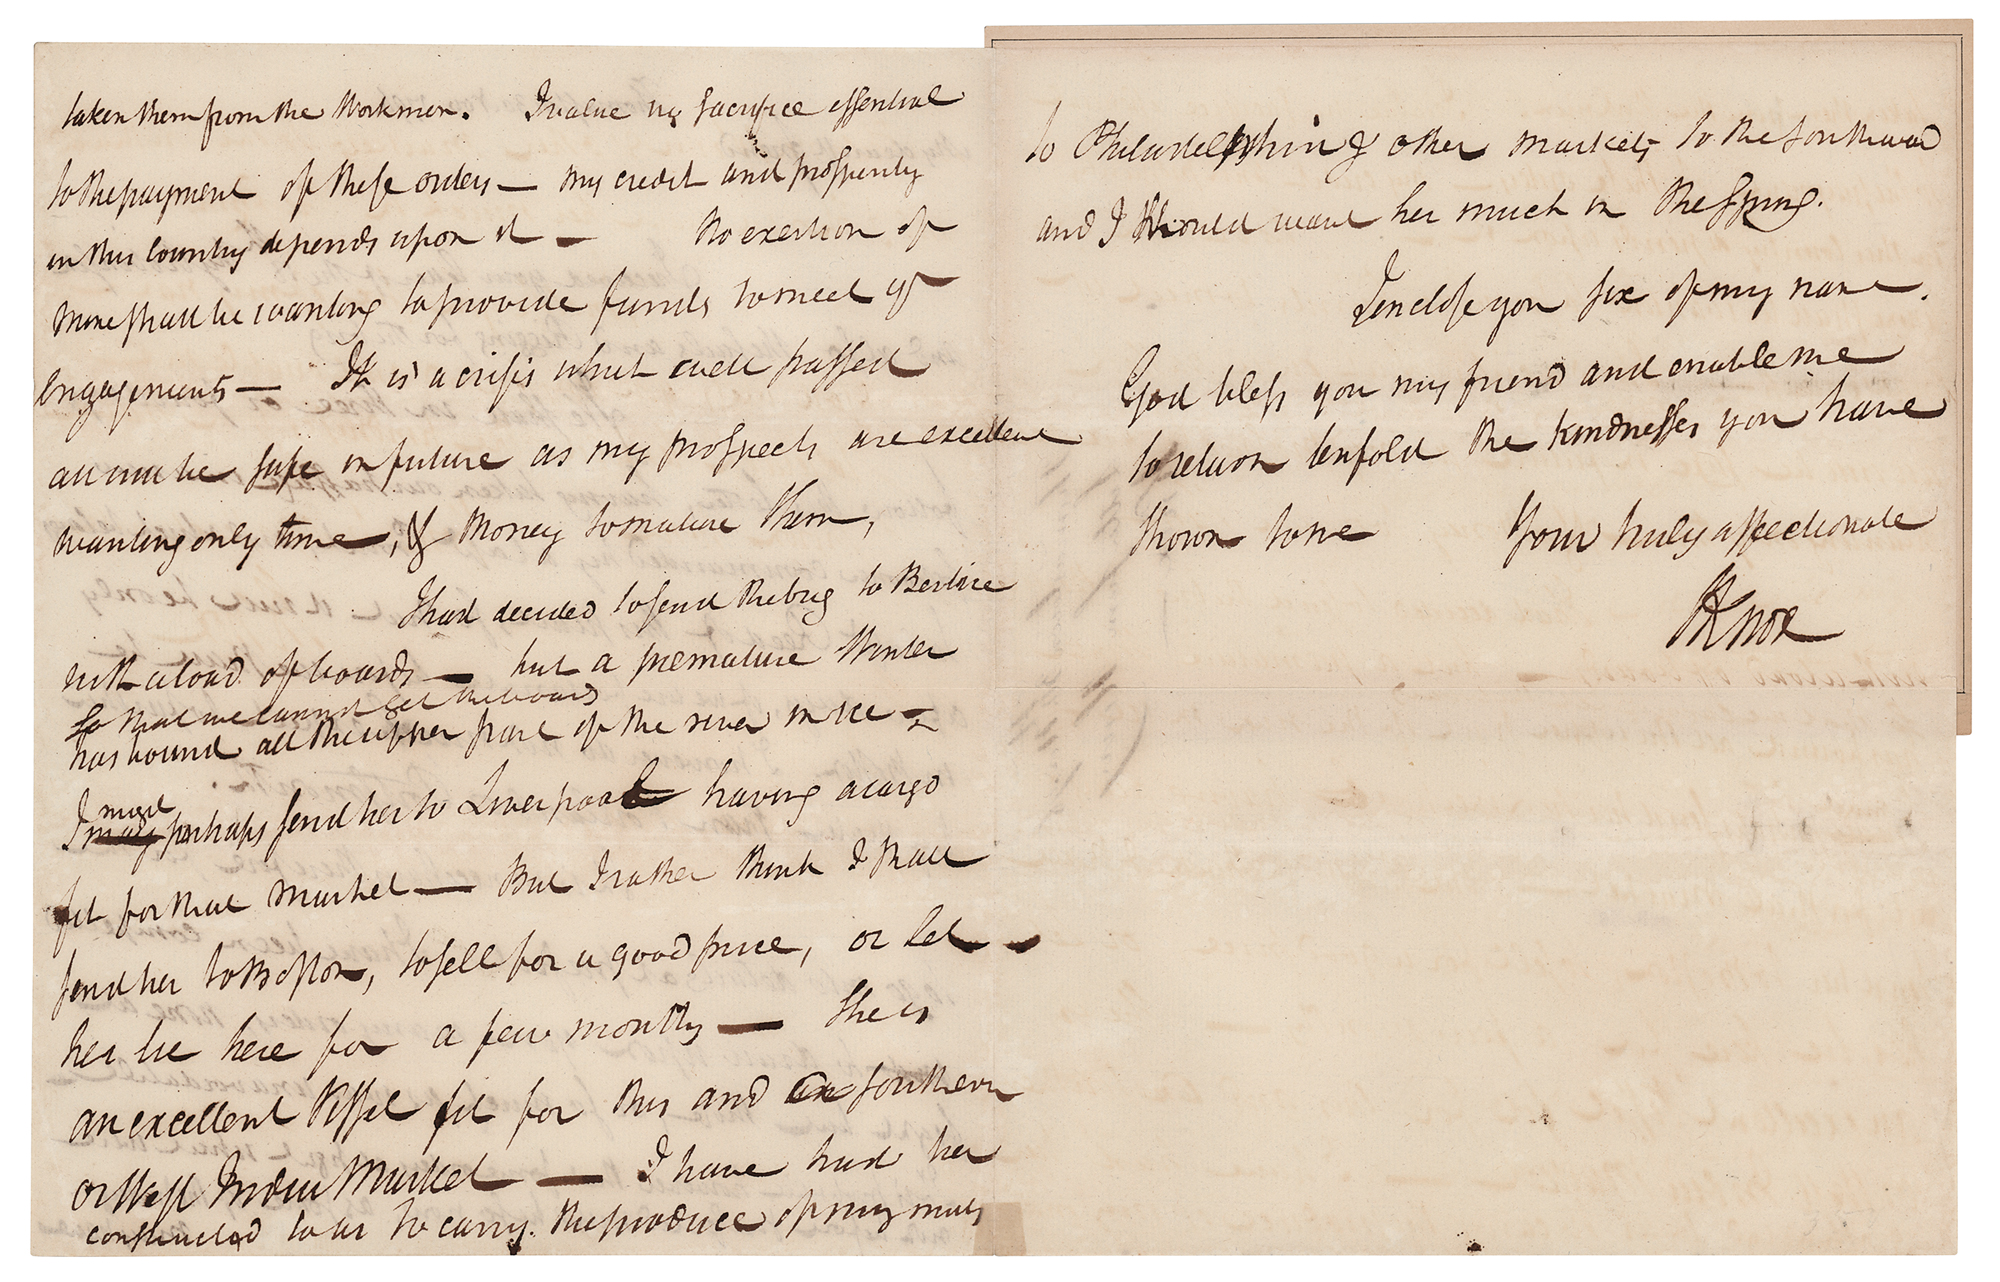 taken them from the Workmen. I value no sacrifice essential
to the payment of these orders — my credit and prosperity
in this Country depends upon it — No exertion of
mine shall be wanting to provide funds to meet yr
engagements — It is a crisis which well passed
all will be safe in future as my prospects are excellent
wanting only time, & Money to mature them,
I had decided to send the brig to Berbice
with a load of boards — but a premature Winter
so that we cannot get the boards
has bound all the upper part of the river in ice —
must
I may perhaps send her to Liverpool having a cargo
fit for that market — But I rather think I shall
send her to Boston, to sell for a good price, or let
her lie here for a few months — She is
an excellent Vessel fit for this and southern
or West India Market — I have had her
constructed so as to carry the produce of my mills
to Philadelphia & other markets to the southward
and I should want her much in the Spring.
I enclose you six of my name.
God bless you my friend and enable me
to return tenfold the kindnesses you have
shown to me Your truly affectionate
HKnox